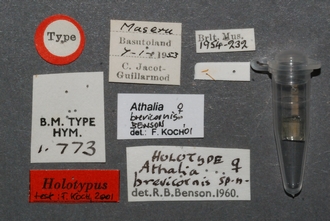 Type
Maseru
Basutoland
1953
C. Jacot-
Guillarmod
Brit. Mus.
1954-232
B.M. TYPE
HYM.
1.773
Athalia ♀
brevicornis
BENSON
det.: F. KOCH 01
Holotypus
F. Koch 2001
HOLOTYPE ♀
Athalia
brevicornis sp.n.
det. R.B. Benson. 1960.